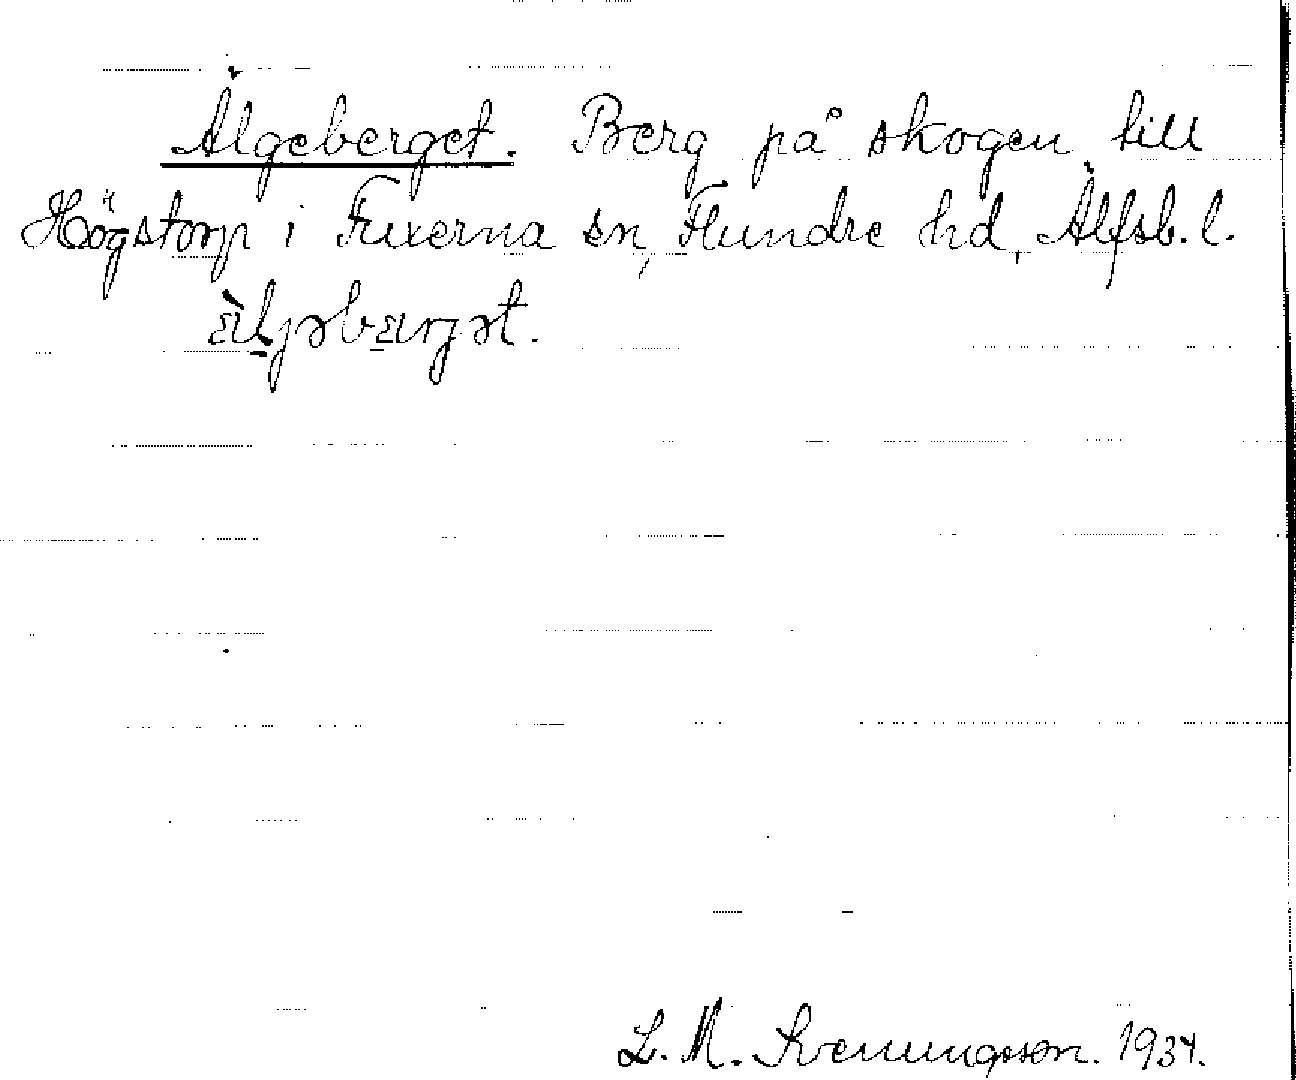 Älgeberget. Berg på skogen till
Högstorp i Fuxerna sn, Flundre hd, Älfsb. l.
L. M. Svenungsson. 1934.